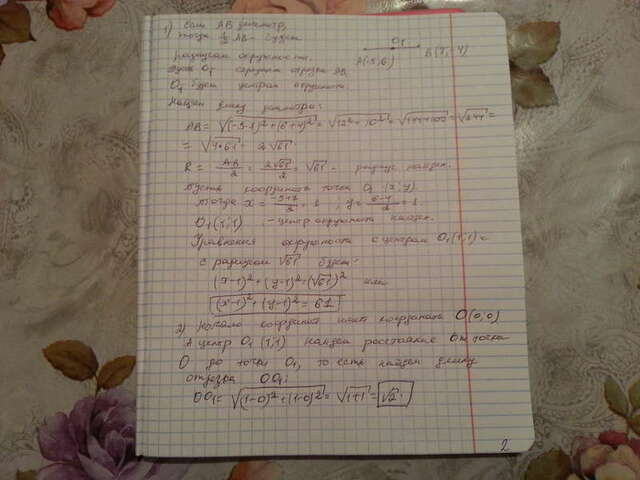 1) Если AB диаметр,
тогда 1/2 AB - будет
O₁
радиусом окружности.
A(-5;6) B(7;-4)
O₁ середина отрезка AB,
O₁ будет центром окружности.
Найдем длину диаметра:
AB = √((-5-7)² + (6+4)²) = √(12² + 10²) = √(144+100) = √244 =
= √(4·61) = 2√61
R = AB/2 = 2√61/2 = √61 - радиус найден.
Пусть координаты точки O₁ (x;y)
тогда x = (-5+7)/2 = 1 ; y = (6-4)/2 = 1
O₁(1;1) - центр окружности найден.
Уравнение окружности с центром O₁(1;1) и
с радиусом √61 будет:
(x-1)² + (y-1)² = (√61)² или
(x-1)² + (y-1)² = 61
2) Начало координат имеет координаты O(0;0)
А центр O₁ (1;1) Найдем расстояние от точки
O до точки O₁, то есть найдем длину
отрезка OO₁:
OO₁ = √((1-0)² + (1-0)²) = √(1+1) = √2.
2